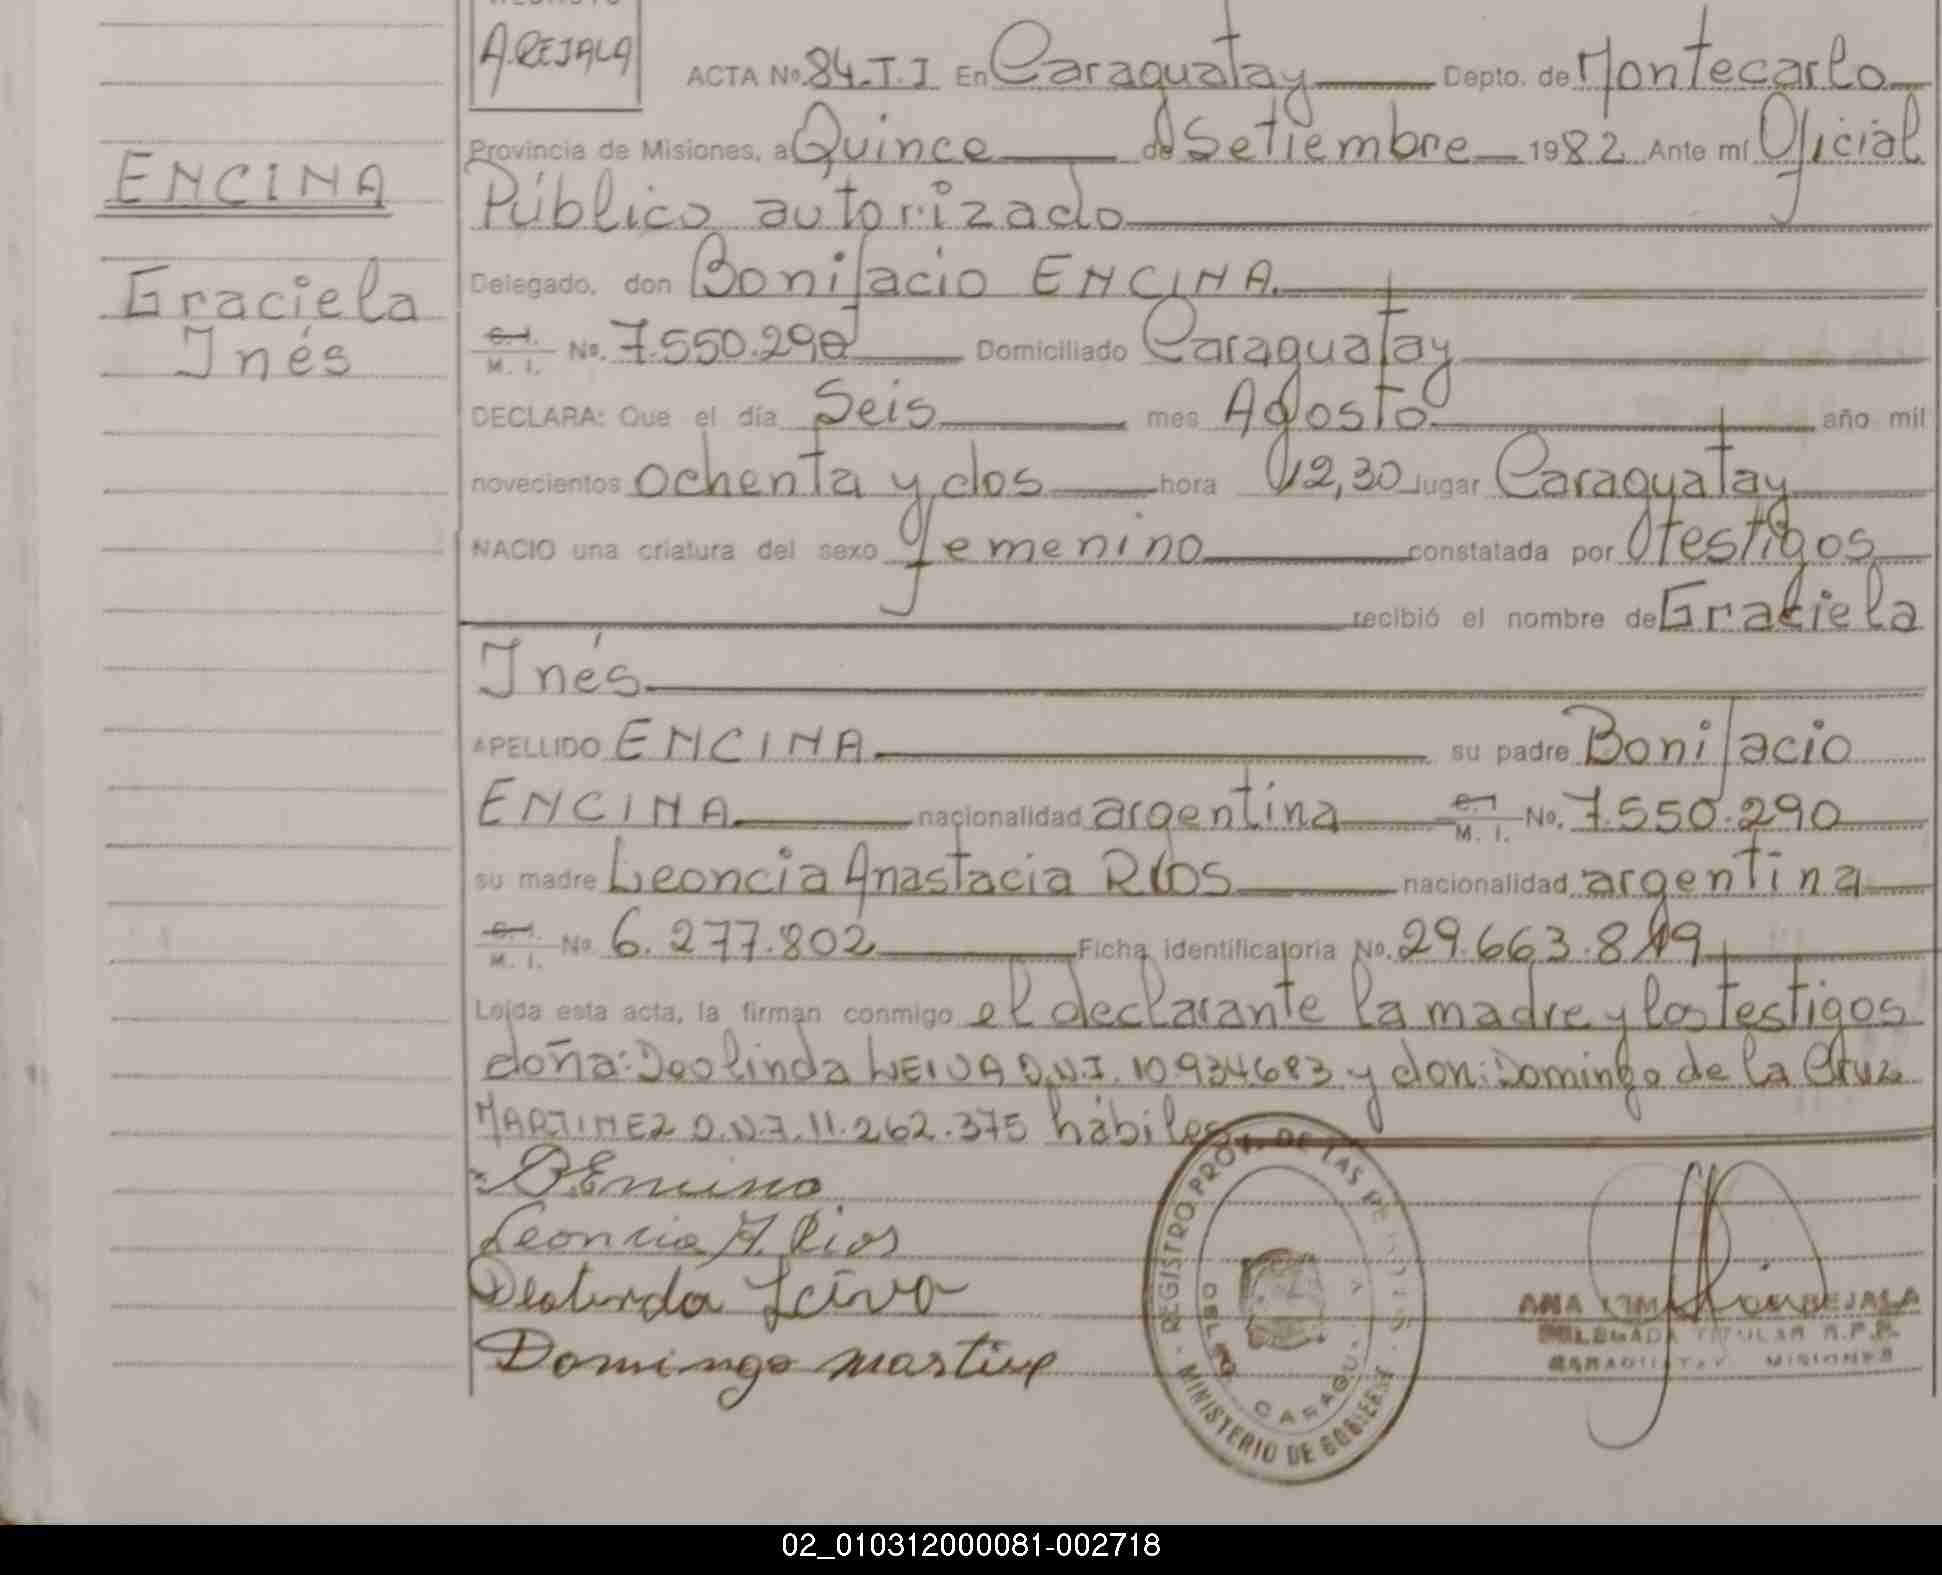 A. REJALA
ACTA No. 84.T.I En Caraguatay Depto. de Montecarlo
Provincia de Misiones, a Quince de Setiembre 1982 Ante mí Oficial
Público autorizado
ENCINA
Delegado, don Bonifacio ENCINA.
Graciela
Inés
C.I. M. I. No. 7.550.290 Domiciliado Caraguatay
DECLARA: Que el día Seis mes Agosto año mil
novecientos ochenta y dos hora 12,30 lugar Caraguatay
NACIO una criatura del sexo femenino constatada por testigos
recibió el nombre de Graciela
Inés
APELLIDO ENCINA su padre Bonifacio
ENCINA nacionalidad argentina C.I. M. I. No. 7.550.290
su madre Leoncia Anastacia RIOS nacionalidad argentina
C.I. M. I. No. 6.277.802 Ficha identificatoria No. 29.663.819
Leída esta acta, la firman conmigo el declarante la madre y los testigos
doña: Deolinda LEIVA D.N.I. 10.934683 y don: Domingo de la Cruz
MARTINEZ D.N.I. 11.262.375 hábiles
B. Encina
Leoncia A. Rios
Deolinda Leiva
Domingo Martinez
REGISTRO PROV. DE LAS
CARAGU
MINISTERIO DE GOBIERNO
ANA REJALA
DELEGADA TITULAR R.P.P.
CARAGUATAY MISIONES
02_010312000081-002718